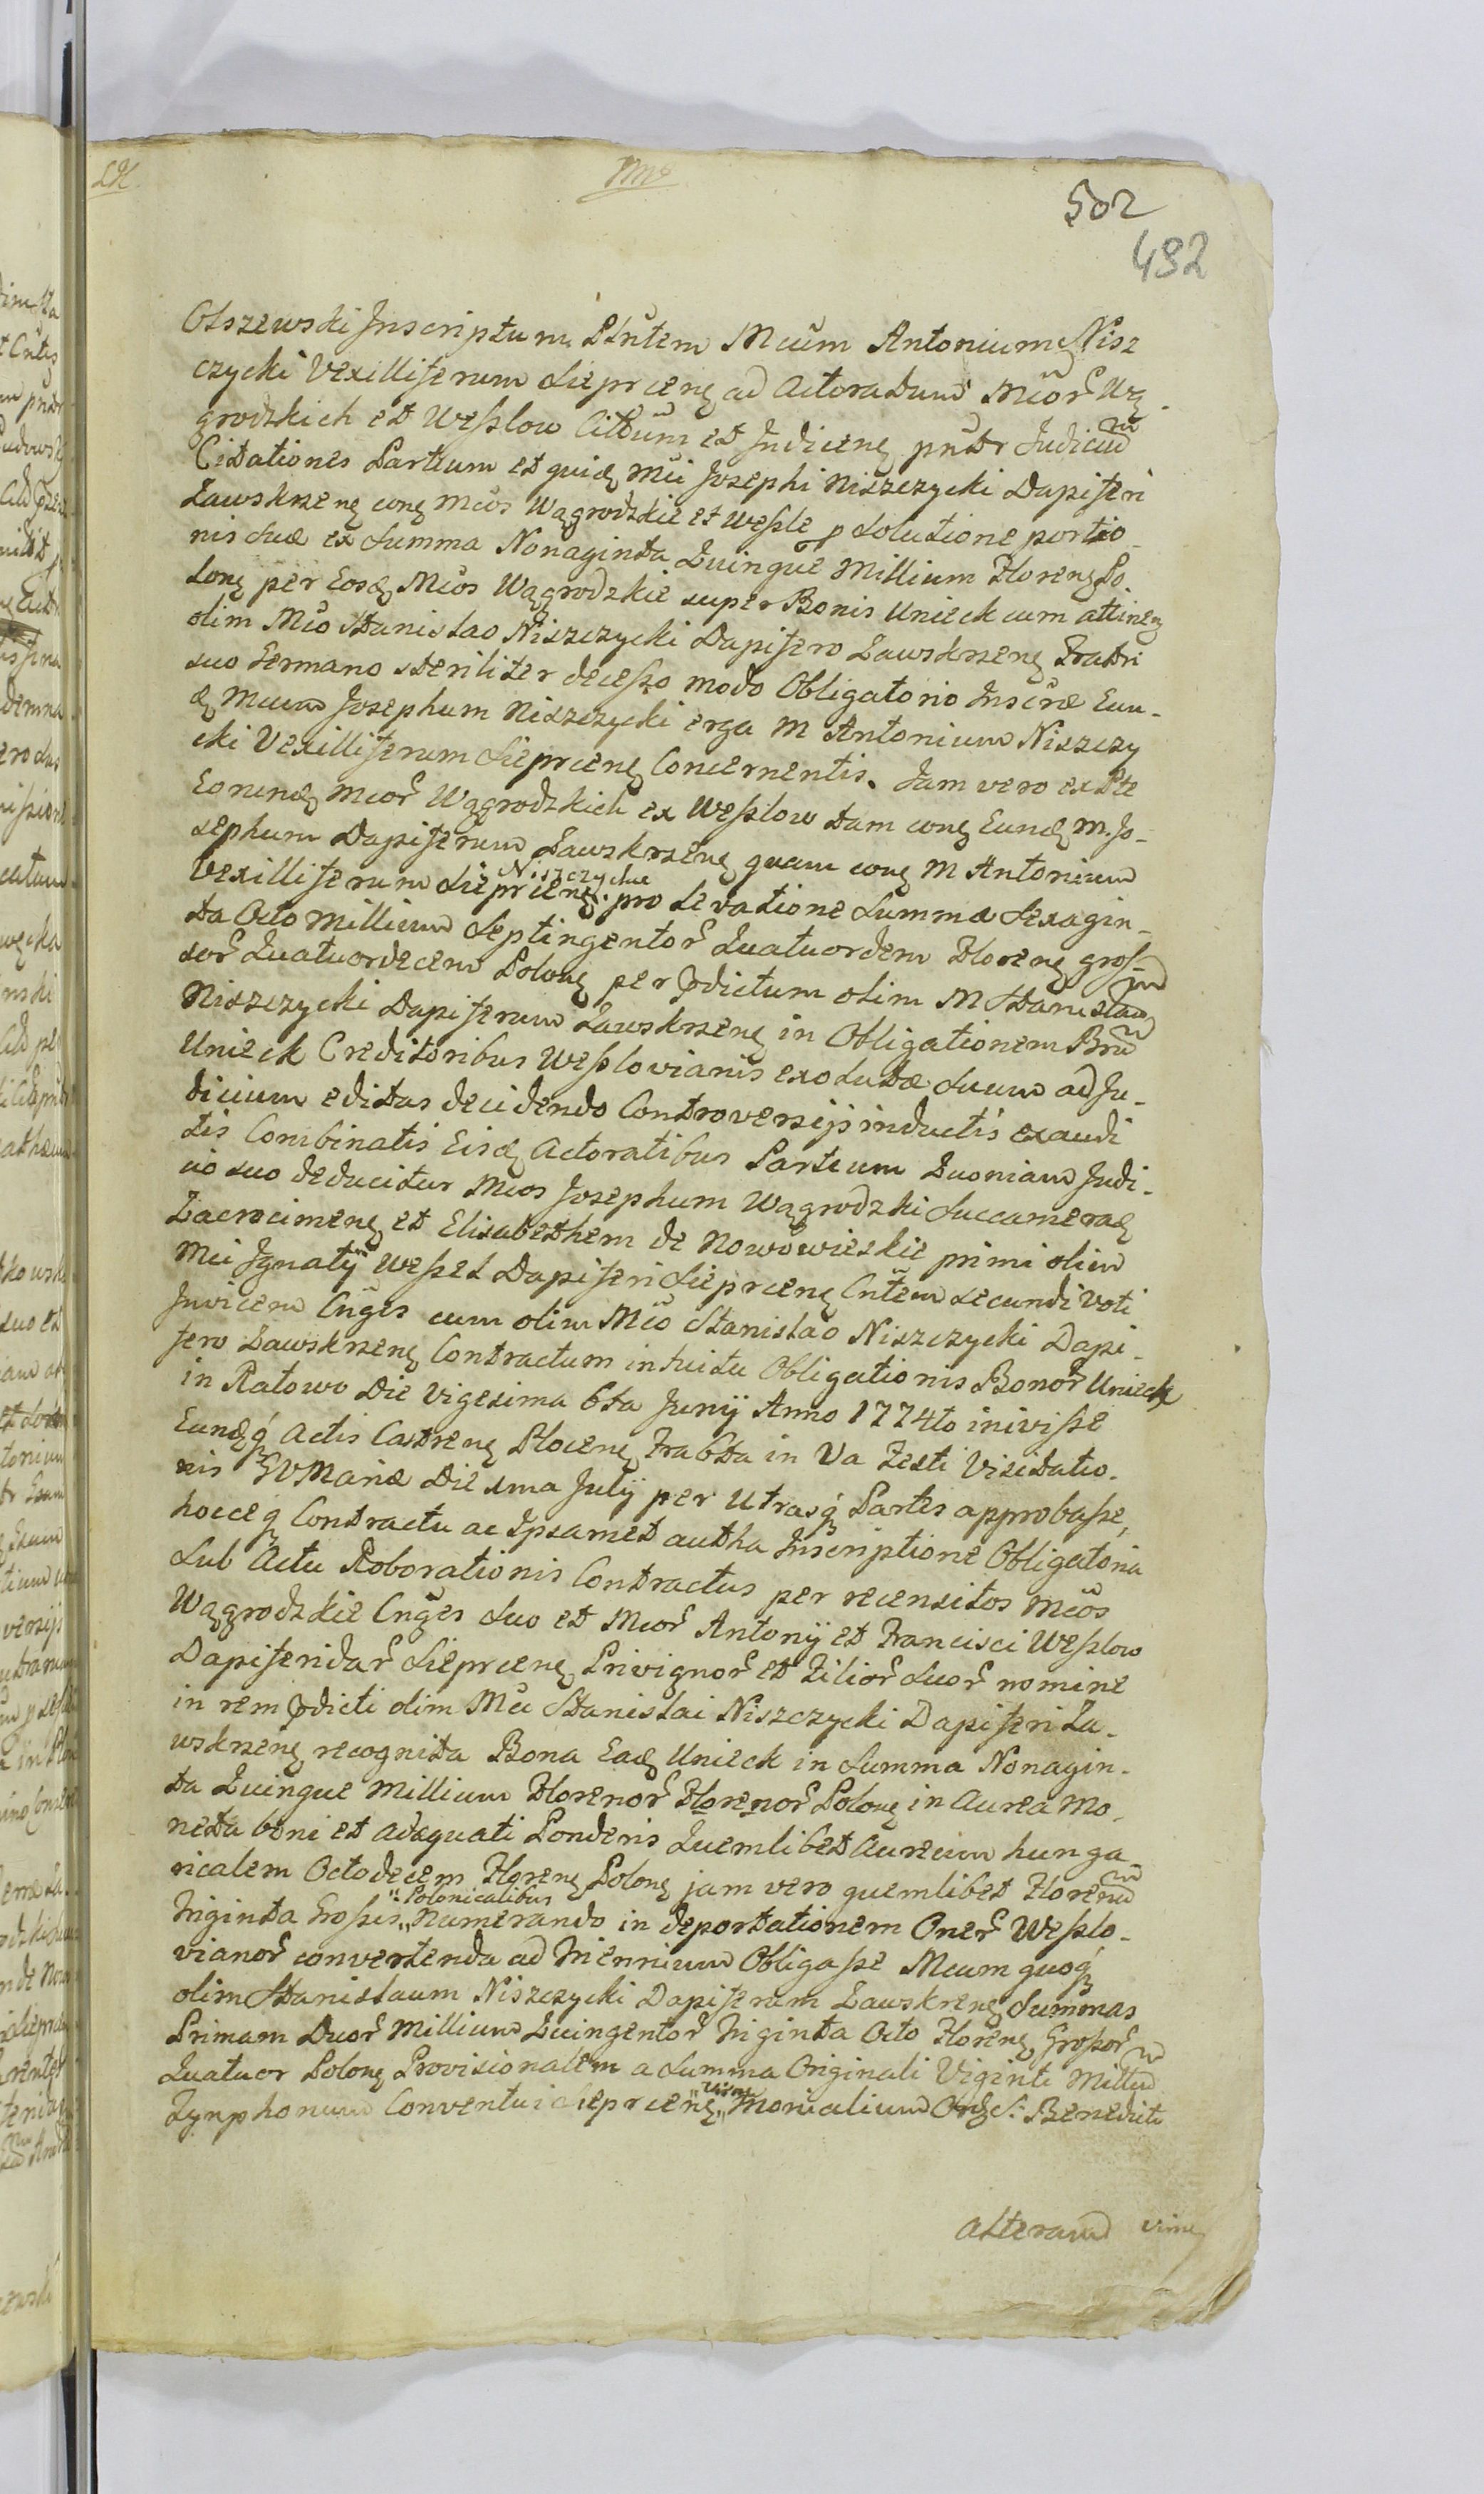 502
492
Olszewski Inscriptum Ptntem Mcum Antonium Nisz
czycki Vexilliferum Sieprceng ad Actoratum Mcor Wą
grodzkich et Wesslow Citatum et Judiceng pntbr Judicium
Citationes Partium et quidq Mci Josephi Niszczycki Dapiferi
Zawskrzeng cong Mcos Wągrodzkie et Wessle p Solutione portio-
nis Suæ ex Summa Nonaginta Quinque Millium Floreng Po-
long per Eosdq Mcos Wągrodzkie super Bonis Unieck cum attineng
olim Mco Stanislao Niszczycki Dapifero Zawskrzeng Fratri
suo Germano steriliter decesso modo Obligatorio Inscræ Eun-
dq Mcum Josephum Niszczycki erga M Antonium Niszczy
cki Vexilliferum Sieprceng Concernentis. Jam vero ex Pte
Eorundq Mcor Wągrodzkich ex Wesslow tam cong Eundq M. Jo-
sephum Dapiferum Zawskrzeng quam cong M Antonium
Vexilliferum Sieprceng Niszczyckie pro levatione Summæ Sexagin-
ta Octo Millium Septingentor Quatuordem Floreng gros-
sor Quatuordecem Polong per Pdictum olim M Stanislaum
Niszczycki Dapiferum Zawskrzeng in Obligationem Bnrum
Unieck Creditoribus Wesslovianis exolutæ Suum ad Ju-
dicium editas decidendo Controversijs inductis exaudi
tis Combinatis Eisdq Actoratibus Partium Quoniam Judi-
cio suo deducitur Mcos Josephum Wągrodzki Succameraq
Zacrocimeng et Elisabethem de Nowowieskie primi olim
Mci Ignatij Wessel Dapiferi Sieprceng Cntem secundi Voti
Invicem Cnges cum olim Mco Stanislao Niszczycki Dapi-
fero Zawskrzeng Contractum intuitu Obligationis Bonor Unieck
in Ratowo Die Vigesima 6ta Junij Anno 1774to inivisse
Eundqq Actis Castreng Ploceng Fra 6ta in Va Festi Visitatio-
nis BVMariæ Die 1ma Julij per Utrasq Partes approbasse,
hocceq Contractu ac Ipsamet autha Inscriptione Obligatoria
Sub Actu Roborationis Contractus per recensitos Mcos
Wągrodzkie Cnges Suo et Mcor Antonij et Francisci Wesslow
Dapiferidar Sieprceng Privignor et Filior Suor nomine
in rem Pdicti olim Mci Stanislai Niszczycki Dapiferi Za-
wskrzeng recognita Bona Eadq Unieck in Summa Nonagin-
ta Quinque Millium Florenor Florenor Polong in Aurea Mo-
neta boni et adæquati Ponderis Quemlibet Aureum hunga-
ricalem Octodecem Floreng Polong jam vero quemlibet Florenum
Triginta Grossis Polonicalibus Numerando in deportationem Oner Wesslo-
vianor convertenda ad Triennium Obligasse Mcum quoq
olim Stanislaum Niszczycki Dapiferum Zawskrzeng Summas
Primam Duor Millium Quingentor Triginta Octo Floreng Grossor
Quatuor Polong Provisionalem a Summa Originali Viginti Millium
Tynphonum Conventui Sieprceng Monialium Ordq S. Benedicti
alteram